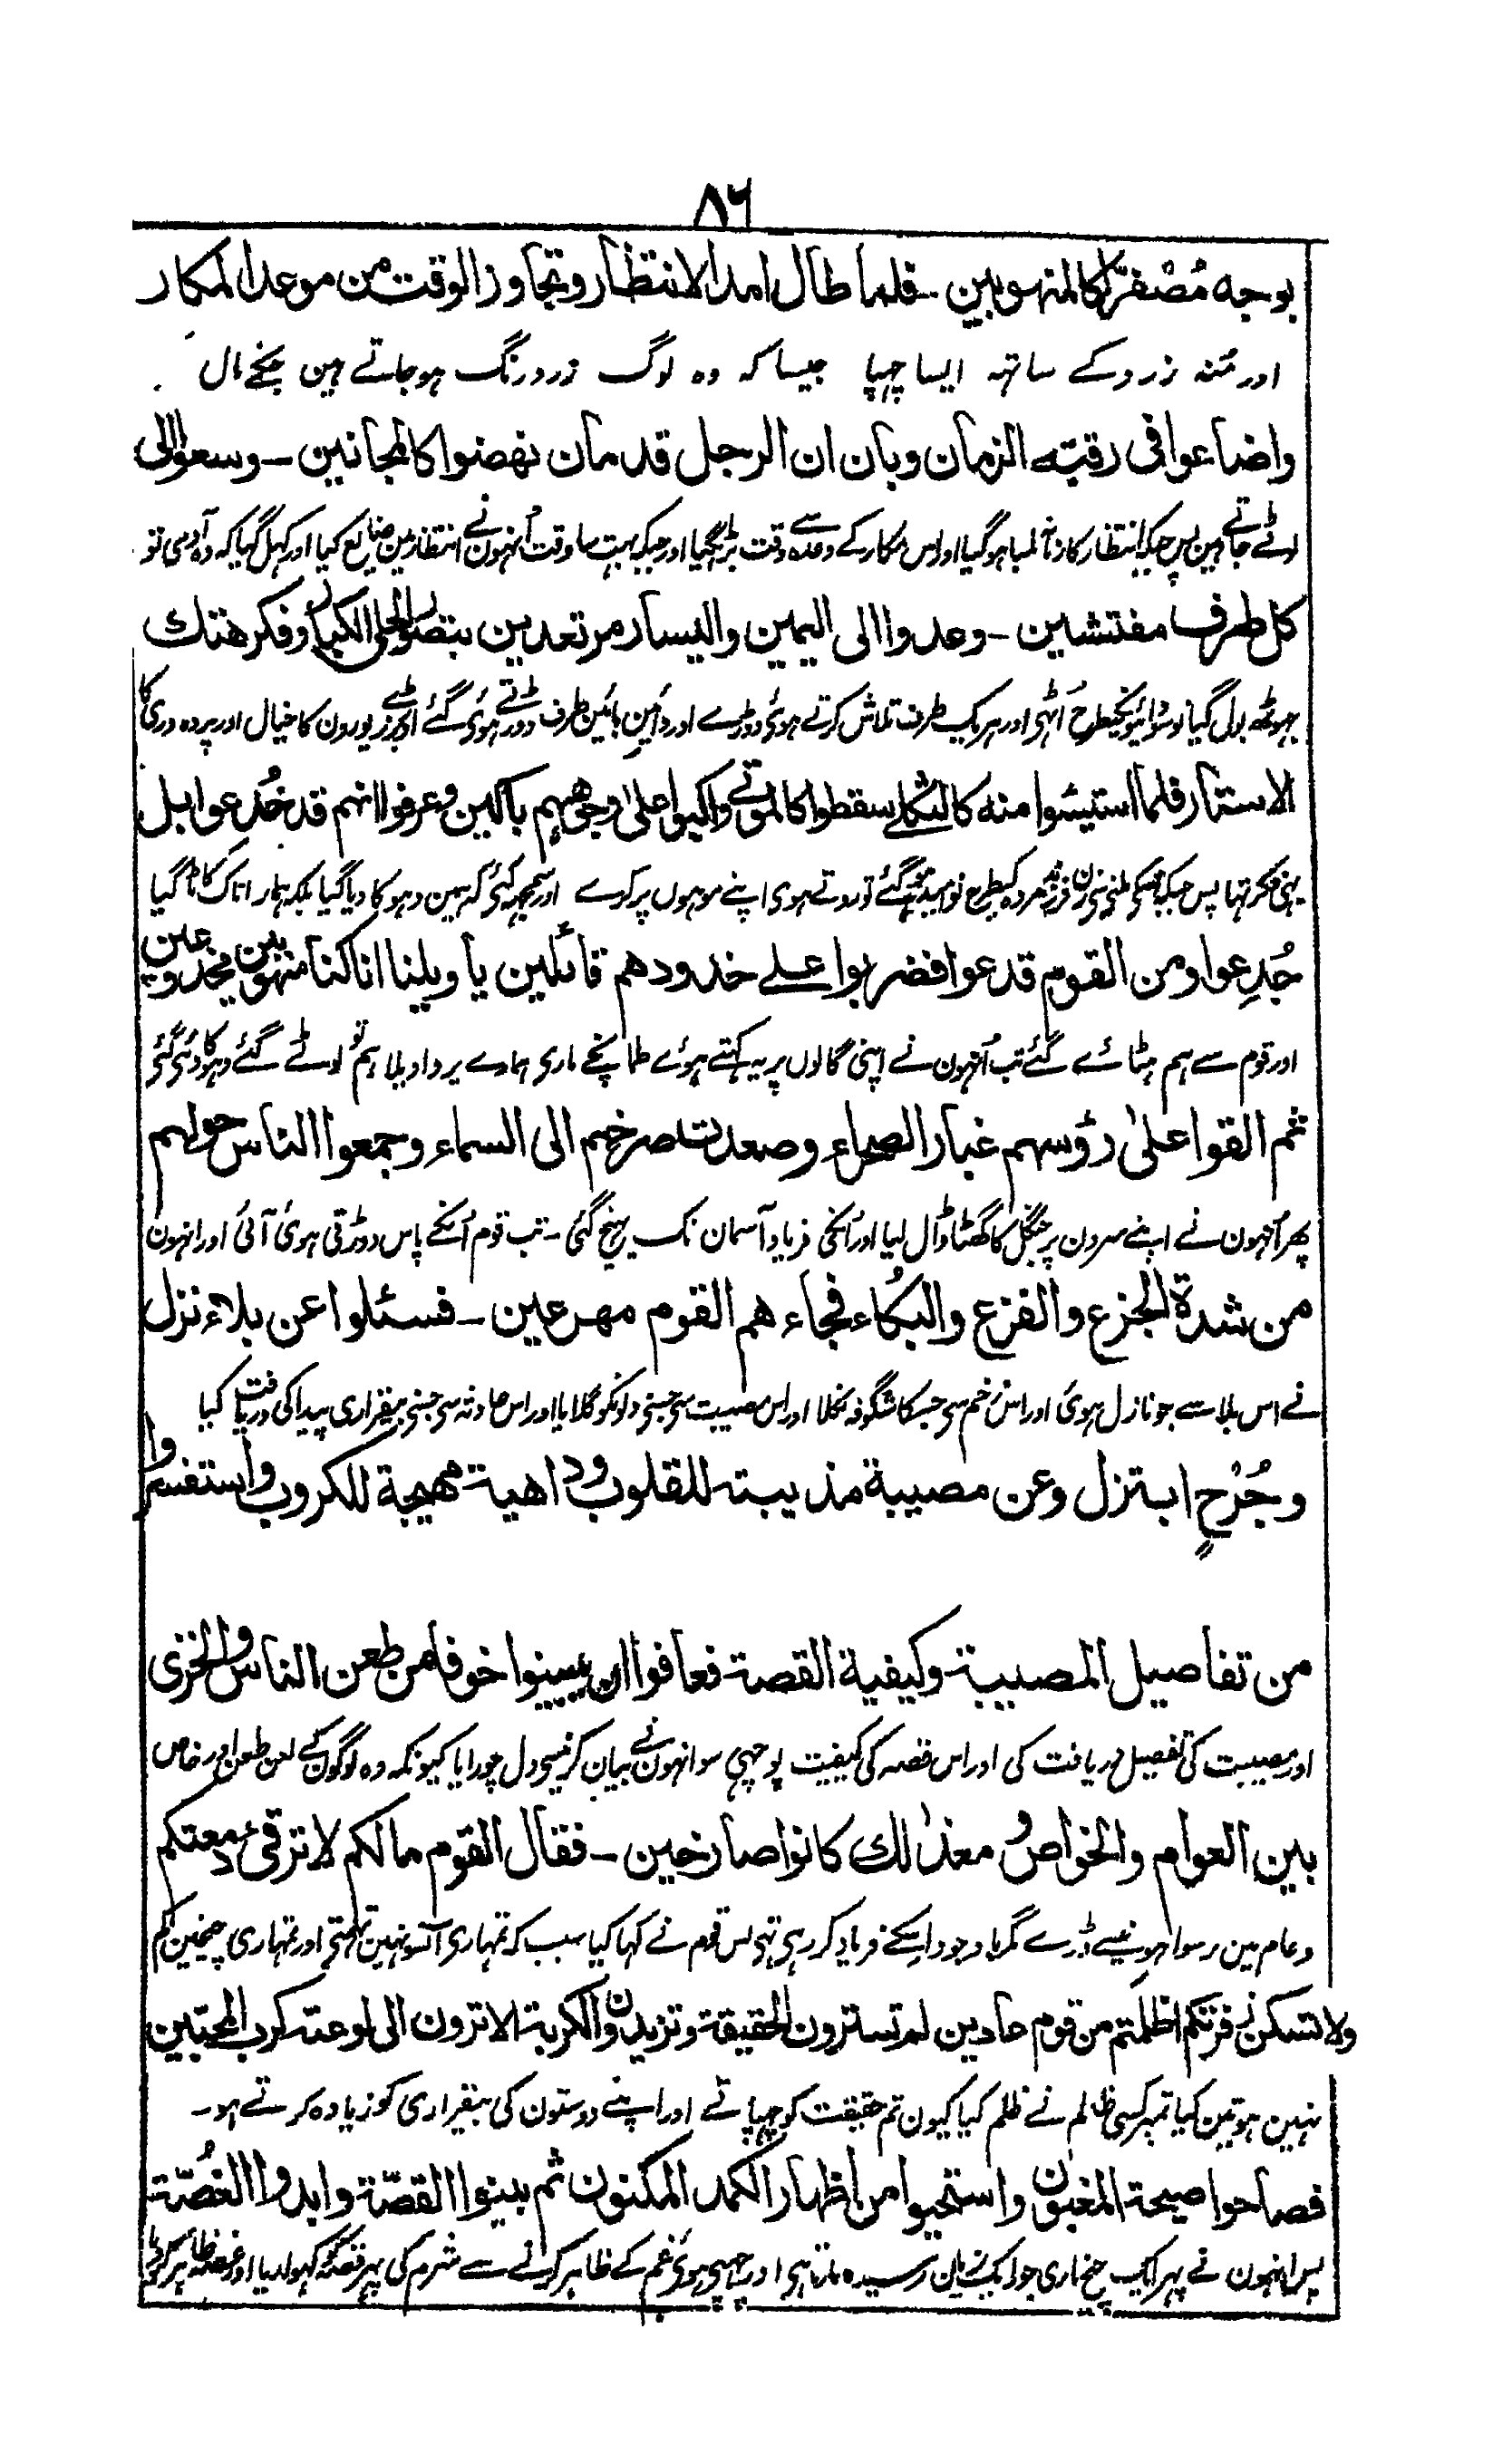 ٨٦
بوجه مُصْفَرٍّ كالمنهوبين ۔ فلما طال امد الانتظار وتجاوز الوقت من موعد المكار
اور مُنہ زرد کے ساتہہ ایسا چہپا جیسا کہ وہ لوگ زرد رنگ ہو جاتے ہین جنکے مال
واضاعوا فى رقبته الزمان وبان ان الرجل قد مان نهضوا كالمجانين ۔ وسعوا الى
لوٹے جاتے ہین پس جبکہ انتظار کا زمانہ لمبا ہو گیا اور اس مکار کے وعدہ سے وقت بڑہ گیا اور جبکہ بہت سا وقت اُنہون نے انتظار مین ضایع کیا اور کہل گیا کہ وہ آدمی تو
كل طرف مفتشين ۔ وعدوا الى اليمين واليسار مرتعدين بتصور الحلى الكبار وفكر هتك
جہوٹھ بول گیا تو سودائیونکیطرح اُٹہی اور ہر یک طرف تلاش کرتے ہوئ دوڑے اور دائین بائین طرف دوڑتے ہوئ گئے اور بڑے زیورون کا خیال اور پردہ دری کا
الاستار فلما استيئسوا منه كالثكلى سقطوا كالموتى واكبوا على وجوههم باكين وعرفوا انهم قد خُدِعوا بل
یہی فکر تہا پس جبکہ فرزند مردہ کیطرح نوامید ہو گئے تو روتے ہوی اپنے موہوں پر گرے اور سمجہہ گئی کہ ہمین دہوکا دیا گیا بلکہ ہمارا ناک کاٹا گیا
جُدِعوا ومن القوم قدعوا فضربوا على خدودهم قائلين يا ويلنا انا كنا منهوبين مخدوعين
اور قوم سے ہم ہٹائے گئے تب اُنہون نے اپنی گالوں پر یہ کہتے ہوئے طمانچے ماری ہمارے پر واویلا ہم تو لوٹے گئے دہوکا دئی گئی
ثم القوا على رؤسهم غبار الصحراء وصعدت صرخهم الى السماء وجمعوا الناس حولهم
پھر اُنہون نے اپنے سرون پر جنگل کا گھٹا ڈال لیا اور اُنکی فریاد آسمان تک پہنچ گئی ۔ تب قوم اُنکے پاس دوڑتی ہوئ آئی اور انہون
من شدة الجزع والفزع والبكاء فجاءهم القوم مهرعين ۔ فسئلوا عن بلاء نزل
نے اس بلا سے جو نازل ہوئ اور اس زخم سی جسکا شگوفہ نکلا اور اس مصیبت سی جسنی دلونکو گلایا اور اس حادثہ سی جسنی بیقراری پیدا کی دریافت کیا
وجُرْحٍ ابتزل وعن مصيبة مذيبة للقلوب وداهية مهيجة للكروب واستفسروا
من تفاصيل المصيبة وكيفية القصة فعافوا ان يبينوا خوفا من طعن الناس والخزى
اور مصیبت کی تفصیل دریافت کی اور اس قصہ کی کیفیت پوچہی سو انہون نے بیان کرنیسی دل چورایا کیونکہ وہ لوگون کے لعن طعن اور خاص
بين العوام والخواص ومع ذٰلك كانوا صارخين ۔ فقال القوم مالكم لا ترقئ دمعتكم
وعام مین رسوا ہونیسے ڈرے مگر باوجود اسکے فریاد کر رہی تہی پس قوم نے کہا کیا سبب کہ تمہاری آنسو نہین تھمتی اور تمہاری چیخین کم
ولا تسكن زفرتكم اظلمتم من قوم عادين لم تسترون الحقيقة وتزيدون الكربة الا ترون الى لوعة كرب المحبّين
نہین ہوتین کیا تمپر کسی ظالم نے ظلم کیا کیون تم حقیقت کو چہپاتے اور اپنے دوستون کی بیقراری کو زیادہ کرتے ہو ۔
فصاحوا صيحة المغبون واستحيوا من اظهار الكمد المكنون ثم بينوا القصّة وابدوا الغُصّة
پس انہون نے پہر ایک چیخ ماری جو ایک زیان رسیدہ مارتا ہی اور چہپی ہوئ غم کے ظاہر کرنے سے شرم کی پہر قصہ کہولدیا اور غصہ ظاہر کر دیا